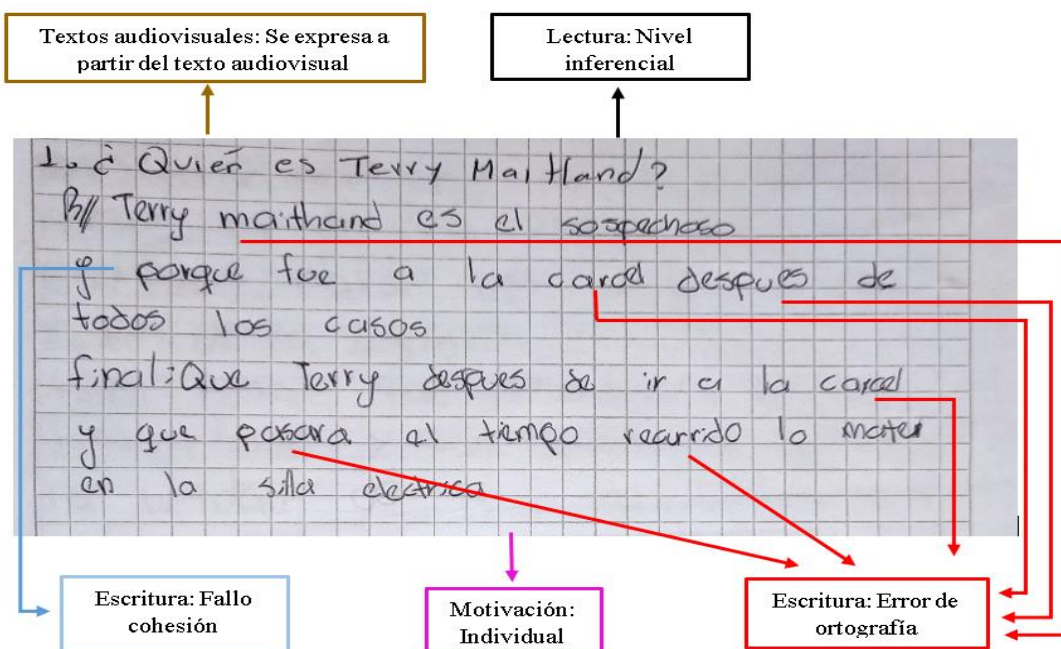 Textos audiovisuales: Se expresa a
partir del texto audiovisual
Lectura: Nivel
inferencial
1. ¿Quien es Terry Maitland?
R// Terry maithand es el sospechoso
y porque fue a la carcel despues de
todos los casos
final: Que Terry despues de ir a la carcel
y que pasara el tiempo recurrido lo maten
en la silla electrica
Escritura: Fallo
cohesión
Motivación:
Individual
Escritura: Error de
ortografía